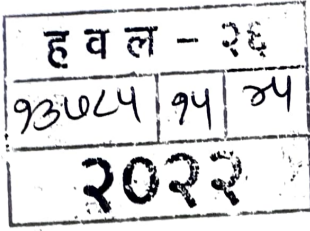 ह व ल - २६
१३७८५ १५ ४५
२०२२